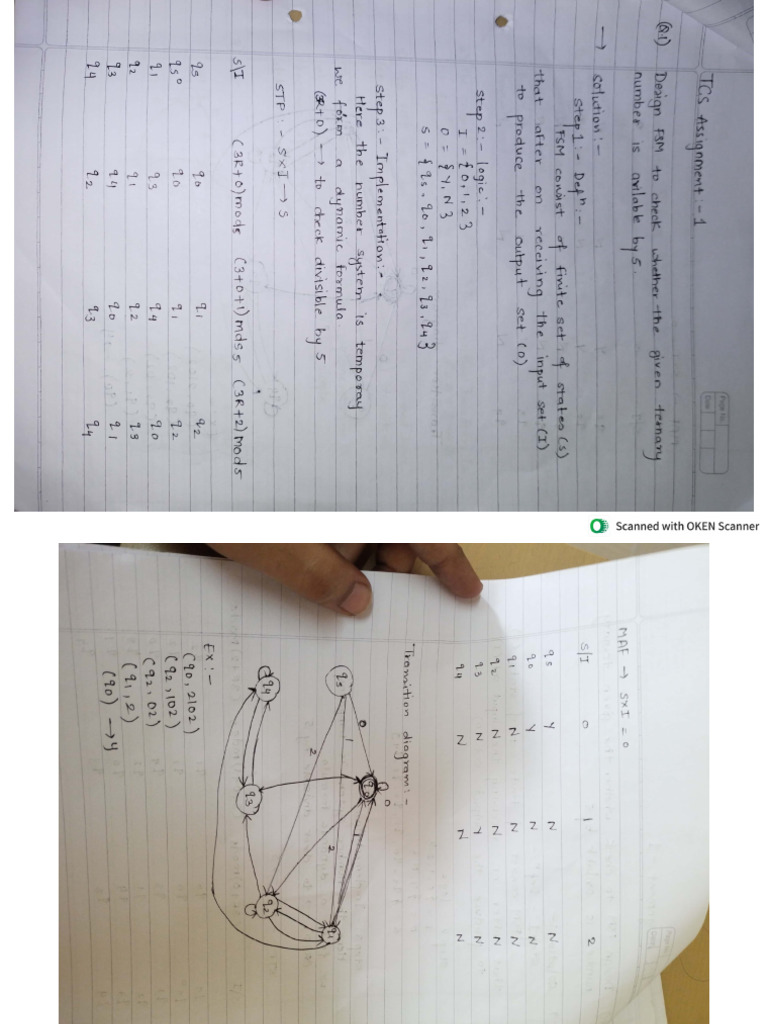 TCS Assignment :- 1
Page No.
Date
Q.1) Design FSM to check whether the given ternary
number is avilable by 5.
→ solution :-
Step 1 :- Defn :-
FSM consist of finite set of states (S)
that after on receiving the input set (I)
to produce the output set (O)
step 2 :- logic :-
I = {0, 1, 2}
O = {Y, N}
S = {qs, q0, q1, q2, q3, q4}
step 3 :- Implementation :-
Here the number system is temporay
we form a dynamic formula
(3R+0) → to check divisible by 5
STF :- S×I → S
S|I (3R+0)mod5 (3+0+1)mds5 (3R+2)mod5
qs q0 q1 q2
q50 q0 q1 q2
q1 q3 q4 q0
q2 q1 q2 q3
q3 q4 q0 q1
q4 q2 q3 q4
Scanned with OKEN Scanner
MAF → S×I = O
S|I 0 1 2
qs Y N N
q0 Y N N
q1 N N N
q2 N N N
q3 N Y N
q4 N N N
Transition diagram :-
qs 0 q0 0
1 1
2 2
q4 q3 q2 q1
Ex :-
(q0, 2102)
(q2, 102)
(q2, 02)
(q1, 2)
(q0) → y